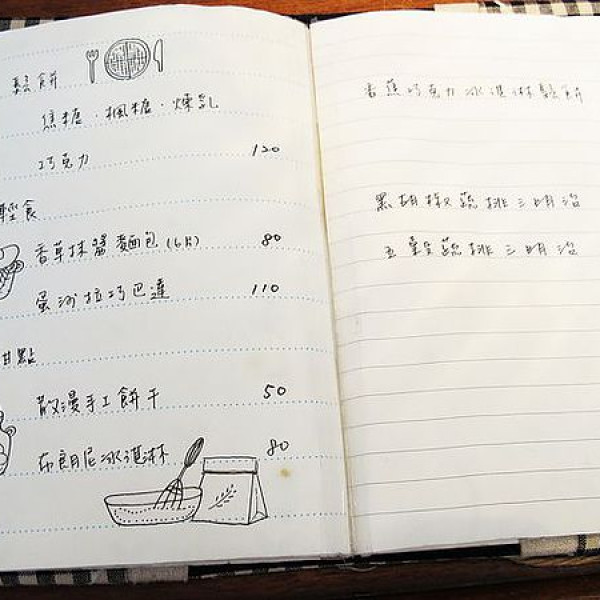 鬆餅
焦糖·楓糖·煉乳
巧克力 120
輕食
香草抹醬麵包(6片) 80
蛋沙拉巧巴達 110
甜點
散漫手工餅干 50
布朗尼冰淇淋 80
香蕉巧克力冰淇淋鬆餅
黑胡椒蔬排三明治
五穀蔬排三明治